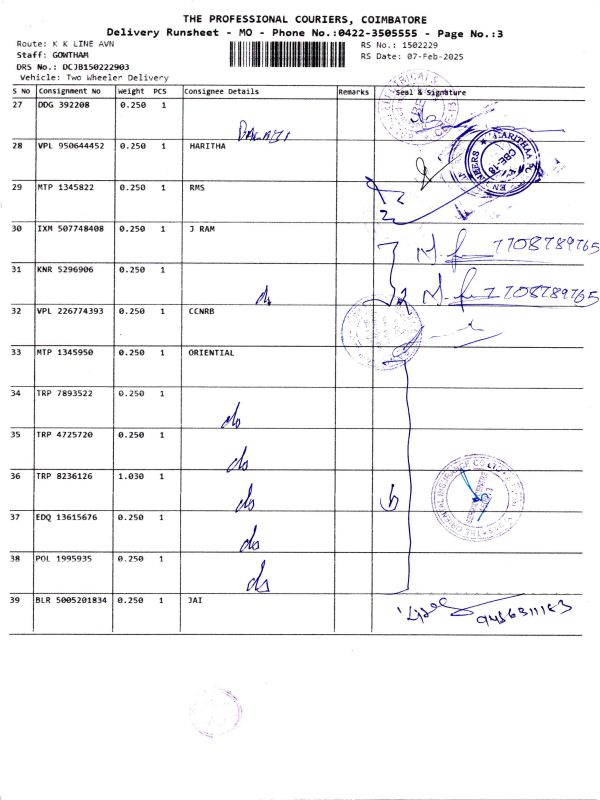 THE PROFESSIONAL COURIERS, COIMBATORE
Delivery Runsheet - MO - Phone No.:0422-3505555 - Page No.:3
Route: K K LINE AVN
RS No.: 1502229
Staff: GOWTHAM
RS Date: 07-Feb-2025
DRS No.: DCJB150222903
Vehicle: Two Wheeler Delivery
S No Consignment No Weight PCS Consignee Details Remarks Seal & Signature
27 DDG 392208 0.250 1
28 VPL 950644452 0.250 1 HARITHA
29 MTP 1345822 0.250 1 RMS
30 IXM 507748408 0.250 1 J RAM 7708789765
31 KNR 5296906 0.250 1 do 7708789765
32 VPL 226774393 0.250 1 CCNRB
33 MTP 1345950 0.250 1 ORIENTIAL
34 TRP 7893522 0.250 1 do
35 TRP 4725720 0.250 1 do
36 TRP 8236126 1.030 1 do
37 EDQ 13615676 0.250 1 do
38 POL 1995935 0.250 1 do
39 BLR 5005201834 0.250 1 JAI